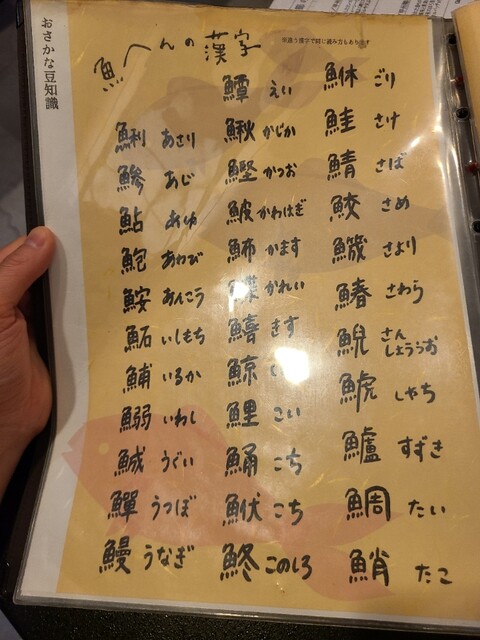 おさかな豆知識
魚へんの漢字
※違う漢字で同じ読み方もあります
鯏 あさり
鯵 あじ
鮎 あゆ
鮑 あわび
鮟 あんこう
鮖 いしもち
鯆 いるか
鰯 いわし
鯎 うぐい
鱓 うつぼ
鰻 うなぎ
鱏 えい
鰍 かじか
鰹 かつお
鮍 かわはぎ
魳 かます
鰈 かれい
鱚 きす
鯨
鯉 こい
鯒 こち
鮲 こち
鮗 このしろ
鮴 ごり
鮭 さけ
鯖 さば
鮫 さめ
鱵 さより
鰆 さわら
鯢 さんしょううお
鯱 しゃち
鱸 すずき
鯛 たい
鮹 たこ